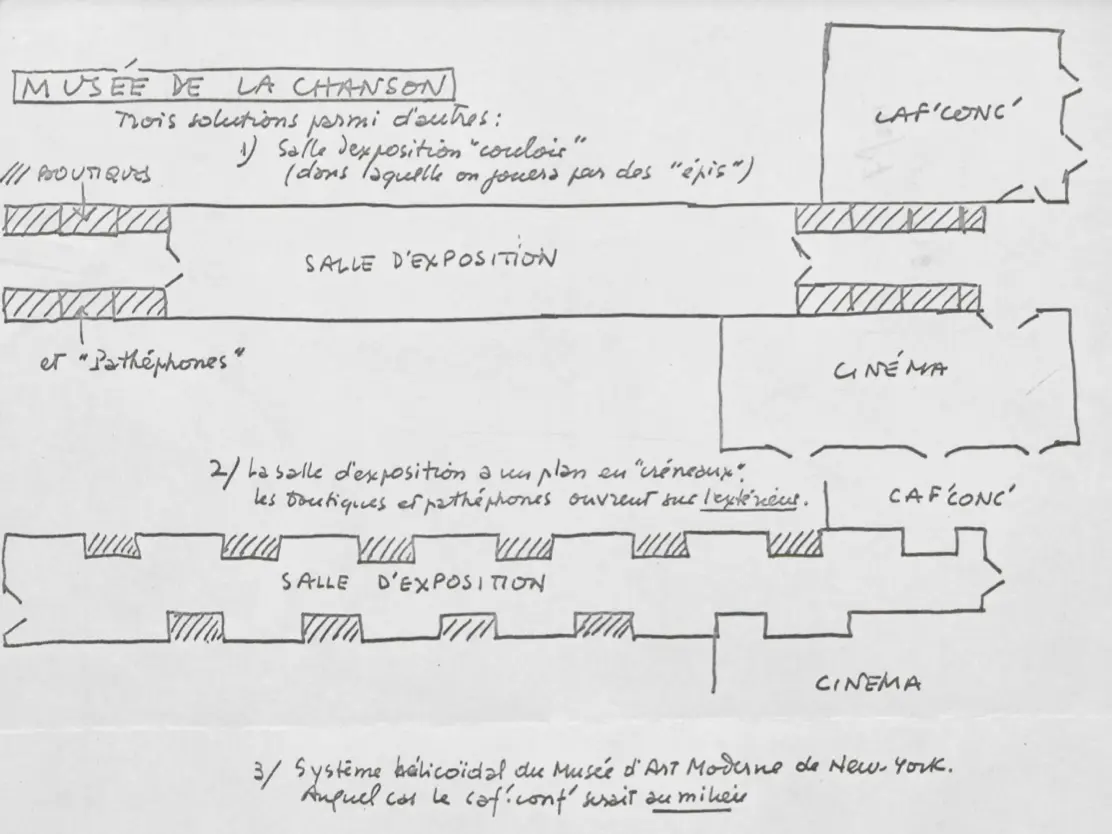 MUSÉE DE LA CHANSON
Trois solutions parmi d'autres :
1) Salle d'exposition "couloir"
(dans laquelle on jouera par des "épis")
/// BOUTIQUES
CAF'CONC'
SALLE D'EXPOSITION
et "Pathéphones"
CINÉMA
2/ La salle d'exposition a un plan en "créneaux".
les boutiques et pathéphones ouvrent sur l'extérieur.
CAF'CONC'
SALLE D'EXPOSITION
CINEMA
3/ Système hélicoïdal du Musée d'Art Moderne de New-York.
Auquel cas le caf'conf' serait au milieu